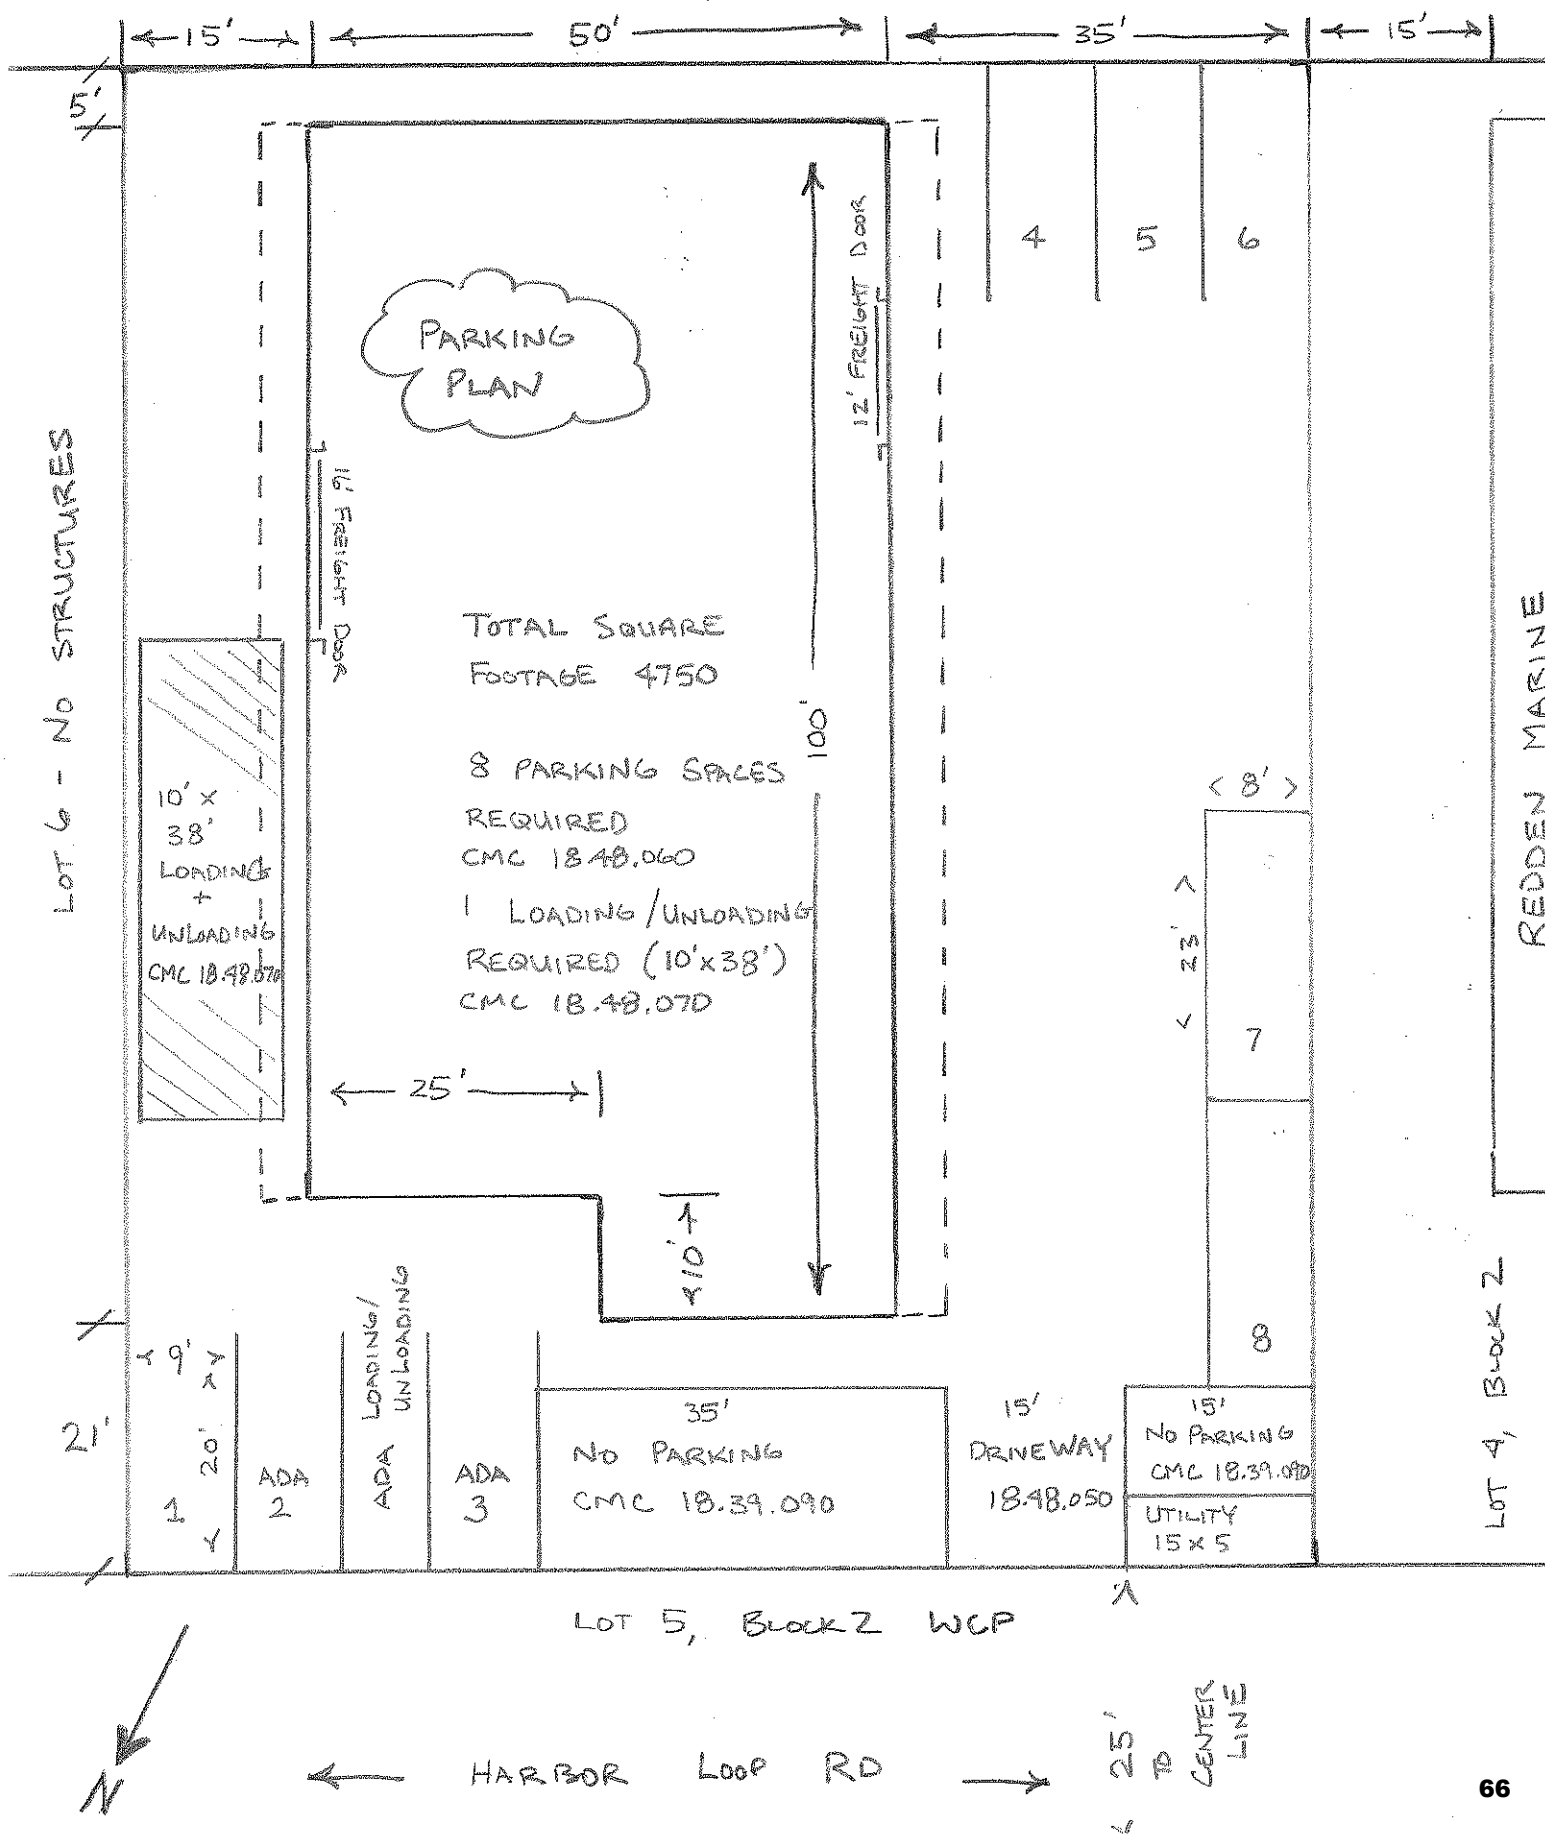 15'
50'
35'
15'
5'
4
5
6
12' FREIGHT DOOR
PARKING
PLAN
16' FREIGHT DOOR
LOT 6 - NO STRUCTURES
TOTAL SQUARE
FOOTAGE 4750
100'
8 PARKING SPACES
REQUIRED
CMC 18.48.060
1 LOADING/UNLOADING
REQUIRED (10'x38')
CMC 18.48.070
10' x
38'
LOADING
+
UNLOADING
CMC 18.48.070
REDDEN MARINE
8'
23'
7
25'
10'
8
LOT 4, BLOCK 2
21'
9'
20'
1
ADA
2
ADA LOADING/
UNLOADING
ADA
3
35'
NO PARKING
CMC 18.39.090
15'
DRIVEWAY
18.48.050
15'
NO PARKING
CMC 18.39.090
UTILITY
15 x 5
LOT 5, BLOCK 2 WCP
N
HARBOR LOOP RD
25'
TO
CENTER
LINE
66